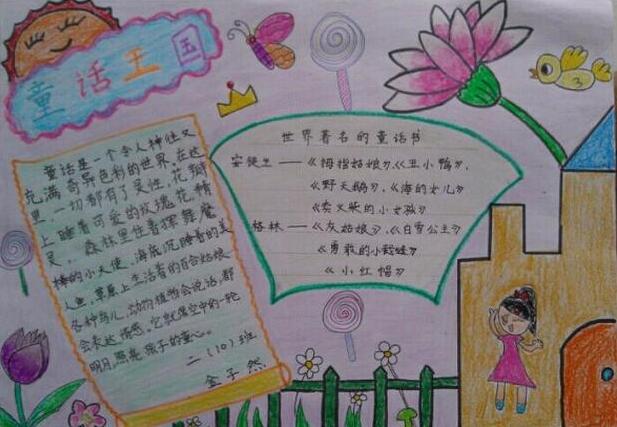 童话王国
童话是一个令人神往又
充满奇异色彩的世界,在这
里,一切都有了灵性,花瓣
上睡着可爱的玫瑰花精
灵,森林里住着挥舞魔
棒的小天使,海底沉睡着的美
人鱼,草原上生活着的百合姑娘
各种鸟儿,动物植物会说话,都
会表达情感,它就像空中的一轮
明月,照是孩子的童心。
二(10)班
金子然
世界著名的童话书
安徒生——《拇指姑娘》、《丑小鸭》、
《野天鹅》、《海的女儿》
《卖火柴的小女孩》
格林——《灰姑娘》、《白雪公主》
《勇敢的小裁缝》
《小红帽》